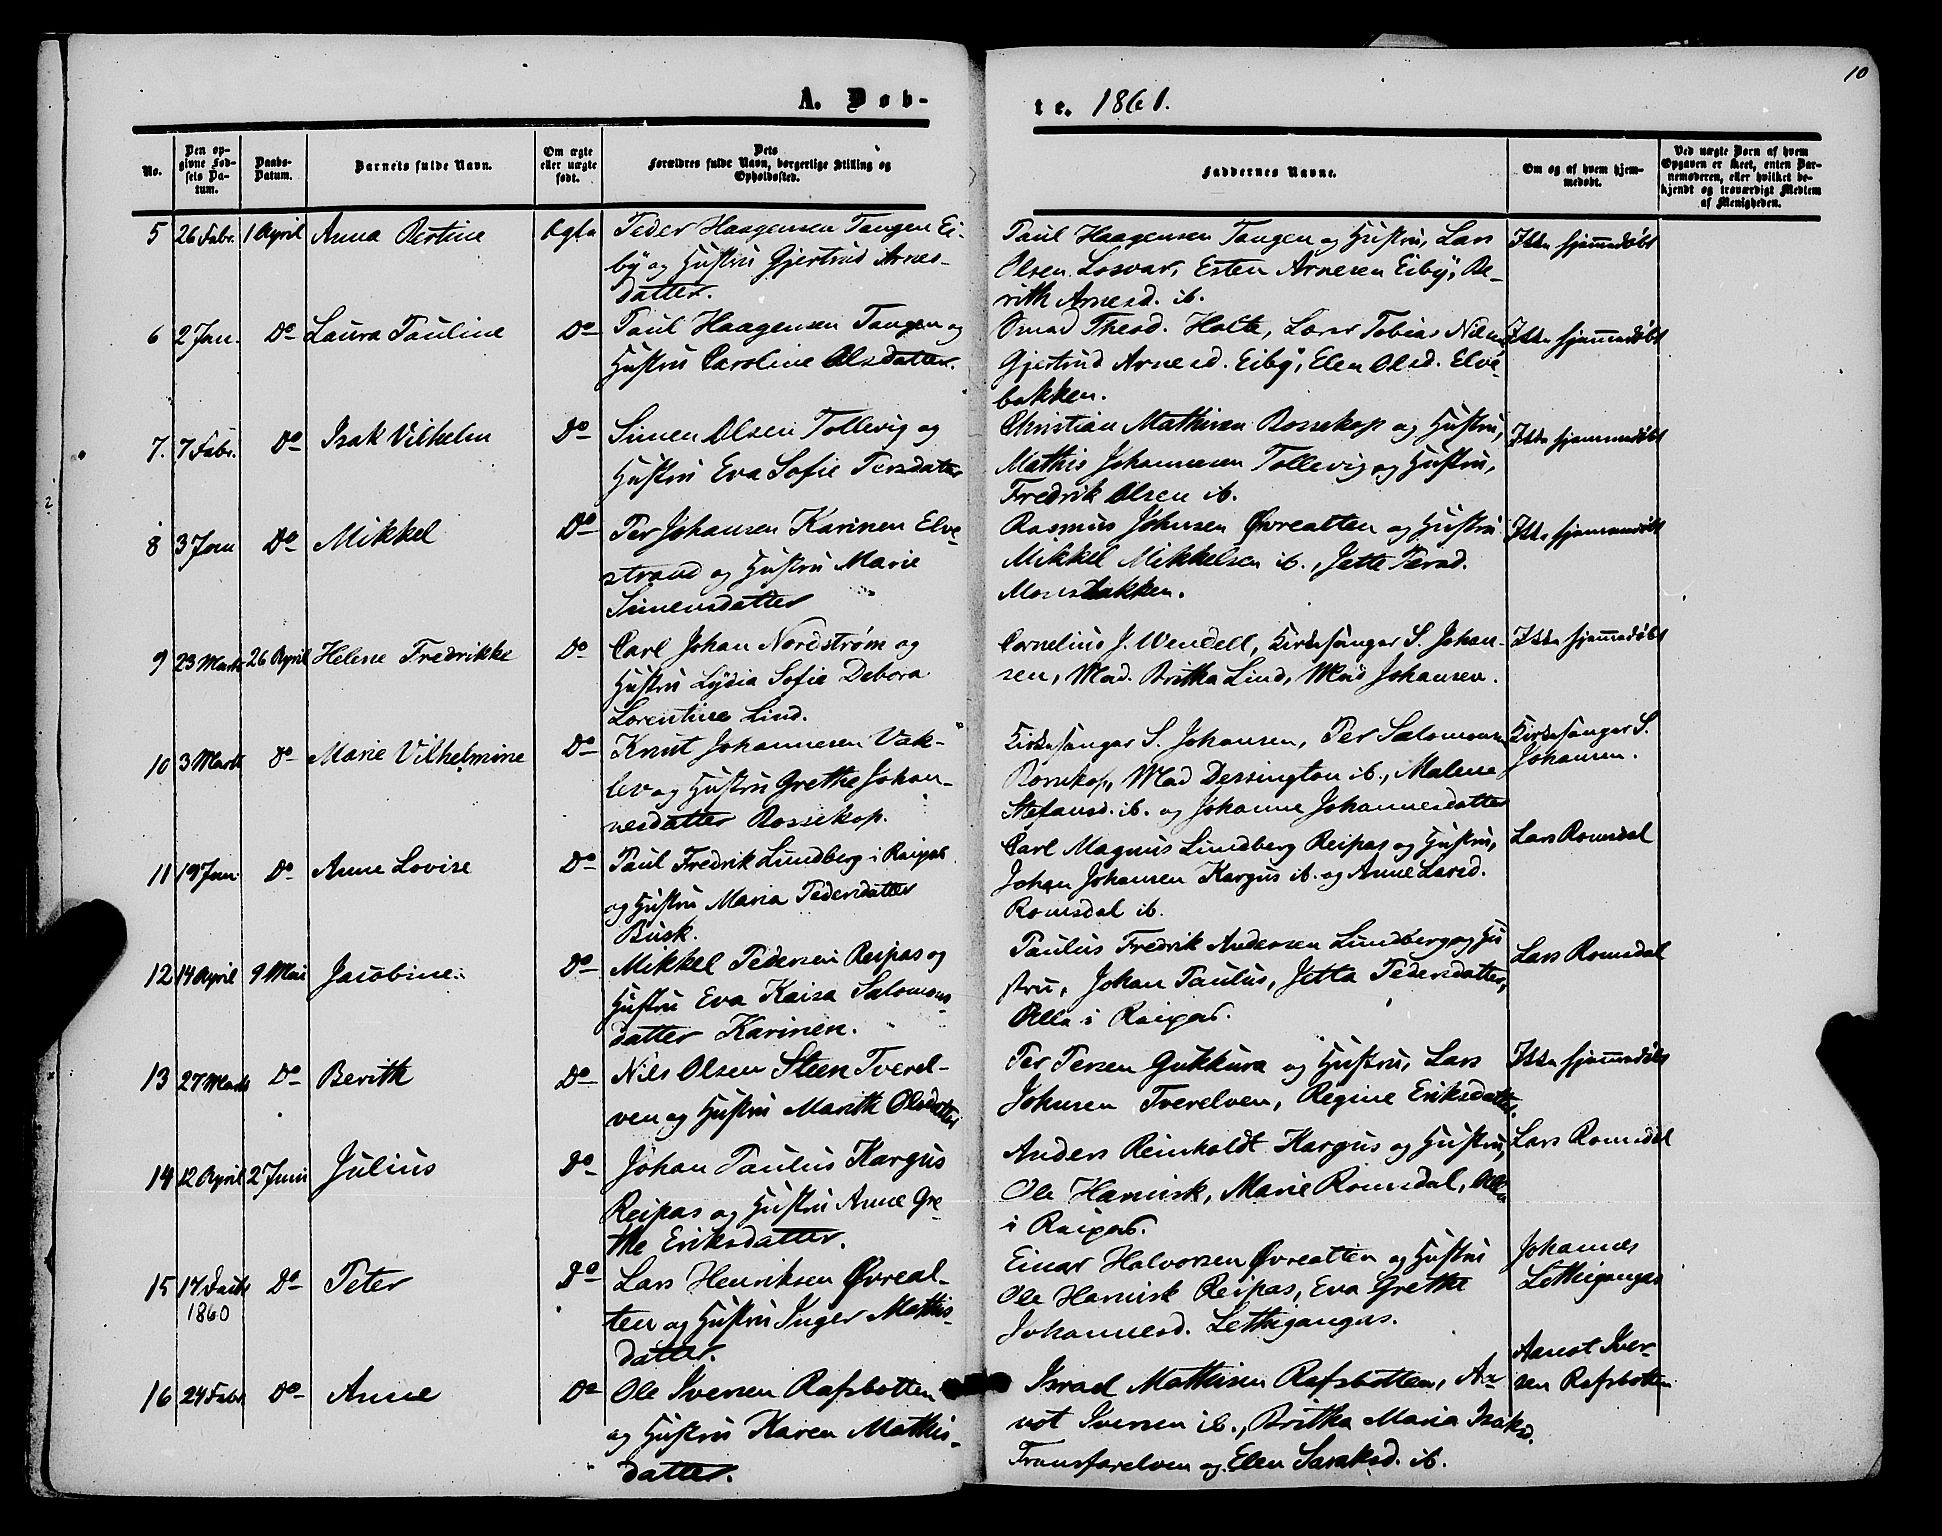 10
A. Døb-
te. 1861.
No.
Den op-
givne Fød-
sels Da-
tum.
Daabs-
Datum.
Barnets fulde Navn.
Om ægte
eller uægte
født.
Dets
Forældres fulde Navn, borgerlige Stilling og
Opholdssted.
Faddernes Navne.
Om og af hvem hjem-
medøbt.
Ved uægte Børn af hvem
Opgaven er skeet, enten Bar-
nemoderen, eller hvilket be-
kjendt og troværdigt Medlem
af Menigheden.
5 26 Febr. 1 April Anna Bertine Ægte Peder Haagensen Tangen Ei-
by og Hustru Gjertrud Arnes-
datter.
Paul Haagensen Tangen og Hustru, Lars
Olsen Losvar, Esten Arnesen Eiby, Be-
rith Arnesd. ib.
Ikke hjemmedøbt
6 2 Jan. Do Laura Pauline Do Paul Haagensen Tangen og
Hustru Caroline Olsdatter.
Thesd. Holte, Lars Tobias Nilsen
Gjertrud Arnesd. Eiby, Elen Olsd. Elve-
bakken.
Ikke hjemmedøbt
7. 7 Febr. Do Isak Vilhelm Do Simen Olsen Tollevig og
Hustru Eva Sofie Persdatter
Christian Mathisen Bossekop og Hustru,
Mathis Johannesen Tollevig og Hustru,
Fredrik Olsen ib.
Ikke hjemmedøbt
8 3 Jan Do Mikkel Do Per Johansen Karinen Elve-
strand og Hustru Marie
Simensdatter
Rasmus Johnsen Øvrealten og Hustru
Mikkel Mikkelsen ib., Jette Persd.
Monsbakken.
Ikke hjemmedøbt
9 23 Marts 26 April Helene Fredrikke Do Carl Johan Nordstrøm og
Hustru Lydia Sofie Debora
Lorentine Lind.
Cornelius J. Wendell, Kirkesanger S. Johan-
sen, Mad. Britha Lind, Mad Johansen.
Ikke hjemmedøbt
10 3 Marts Do Marie Vilhelmine Do Knut Johannesen Vak-
lev og Hustru Grethe Johan-
nesdatter Bossekop.
Kirkesanger S. Johansen, Per Salomonsen
Bossekop, Mad Dessington ib., Malene
Stefansd. ib. og Johanne Johannesdatter
Kirkesanger S.
Johansen.
11 19 Jan. Do Anne Lovise Do Paul Fredrik Lundberg i Raipas
og Hustru Maria Pedersdatter
Busk.
Carl Magnus Lundberg Reipas og Hustru,
Johan Johansen Kargus ib. og Anne Larsd.
Romsdal ib.
Lars Romsdal
12 14 April 9 Mai Jacobine Do Mikkel Pedersen Reipas og
Hustru Eva Kaisa Salomons-
datter Karinen.
Paulus Fredrik Andersen Lundberg og Hu
stru, Johan Paulus, Jetta Pedersdatter,
Alle i Raipas.
Lars Romsdal
13 27 Marts Do Berith Do Nils Olsen Steen Tverel-
ven og Hustru Marith Olsdatter
Per Persen Gukkura og Hustru, Lars
Johnsen Tverelven, Regine Eriksdatter.
Ikke hjemmedøbt
14 12 April 2 Juni Julius Do Johan Paulus Kargus
Reipas og Hustru Anne Gre-
the Eriksdatter.
Anders Reinholdt Kargus og Hustru,
Ole Harnisk, Marie Romsdal, Alle
i Raipas.
Lars Romsdal
15 17 Decbr
1860 Do Peter Do Lars Henriksen Øvreal-
ten og Hustru Inger Mathis-
datter.
Einar Halvorsen Øvrealten og Hustru
Ole Harnisk Reipas, Eva Grethe
Johannesd. Lethigangas.
Johannes
Lethigangas
16 24 Febr Do Anne Do Ole Iversen Rafsbotten
og Hustru Karen Mathis-
datter.
Israel Mathisen Rafsbotten, Ar-
not Iversen ib., Britha Maria Isaksd.
Transfarelven og Elen Saraksd. ib.
Aanot Iver-
sen Rafsbotten